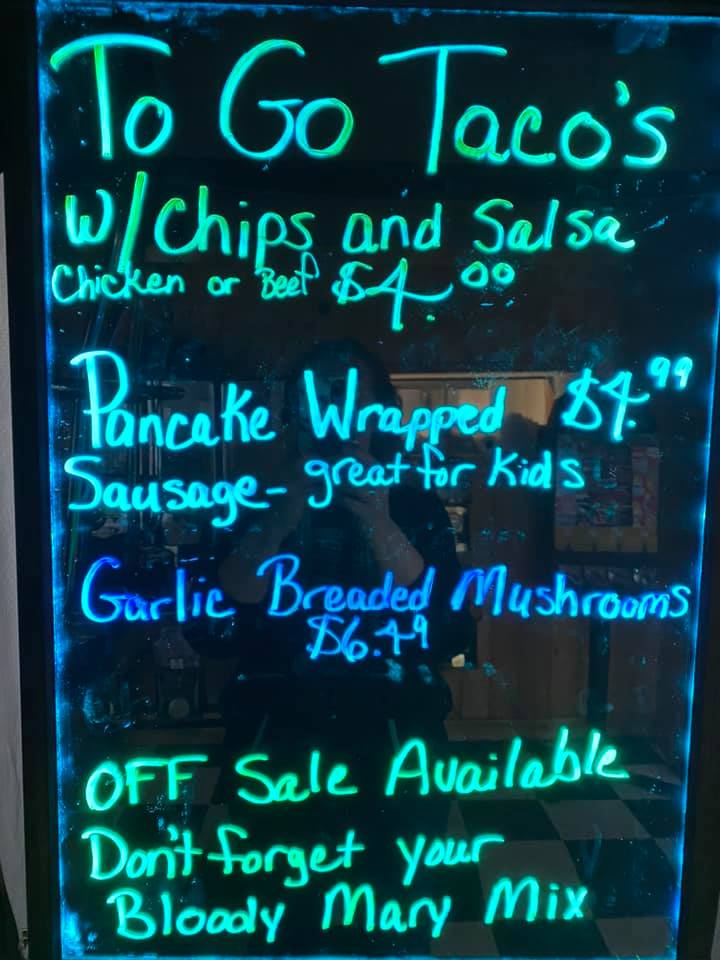 To Go Taco's
w/Chips and Salsa
Chicken or Beef $4.00
Pancake Wrapped $4.99
Sausage- great for Kids
Garlic Breaded Mushrooms
$6.49
OFF Sale Available
Don't forget your
Bloody Mary Mix